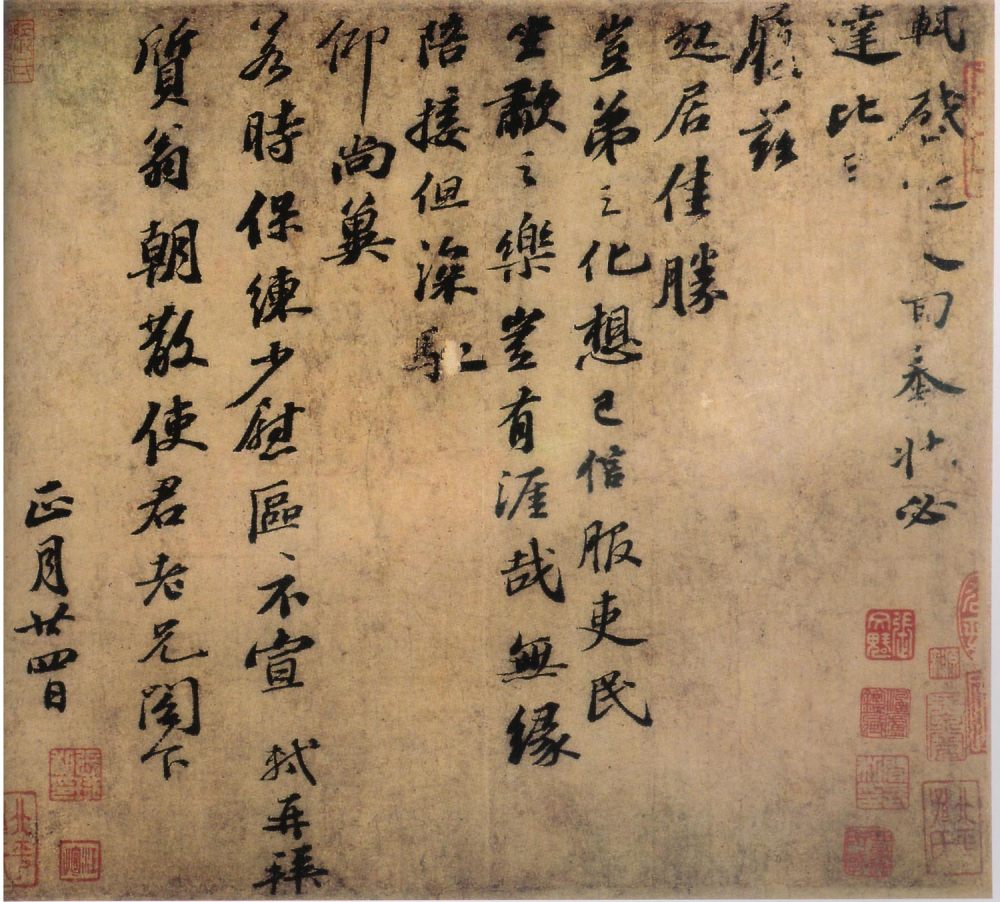 軾啓近人回奉狀必
達比日
履茲
起居佳勝
豈弟之化想已信服吏民
坐嘯之樂豈有涯哉無緣
陪接但深馳
仰尚冀
若時保練少慰區區不宣 軾再拜
質翁朝散使君老兄閤下
正月廿四日